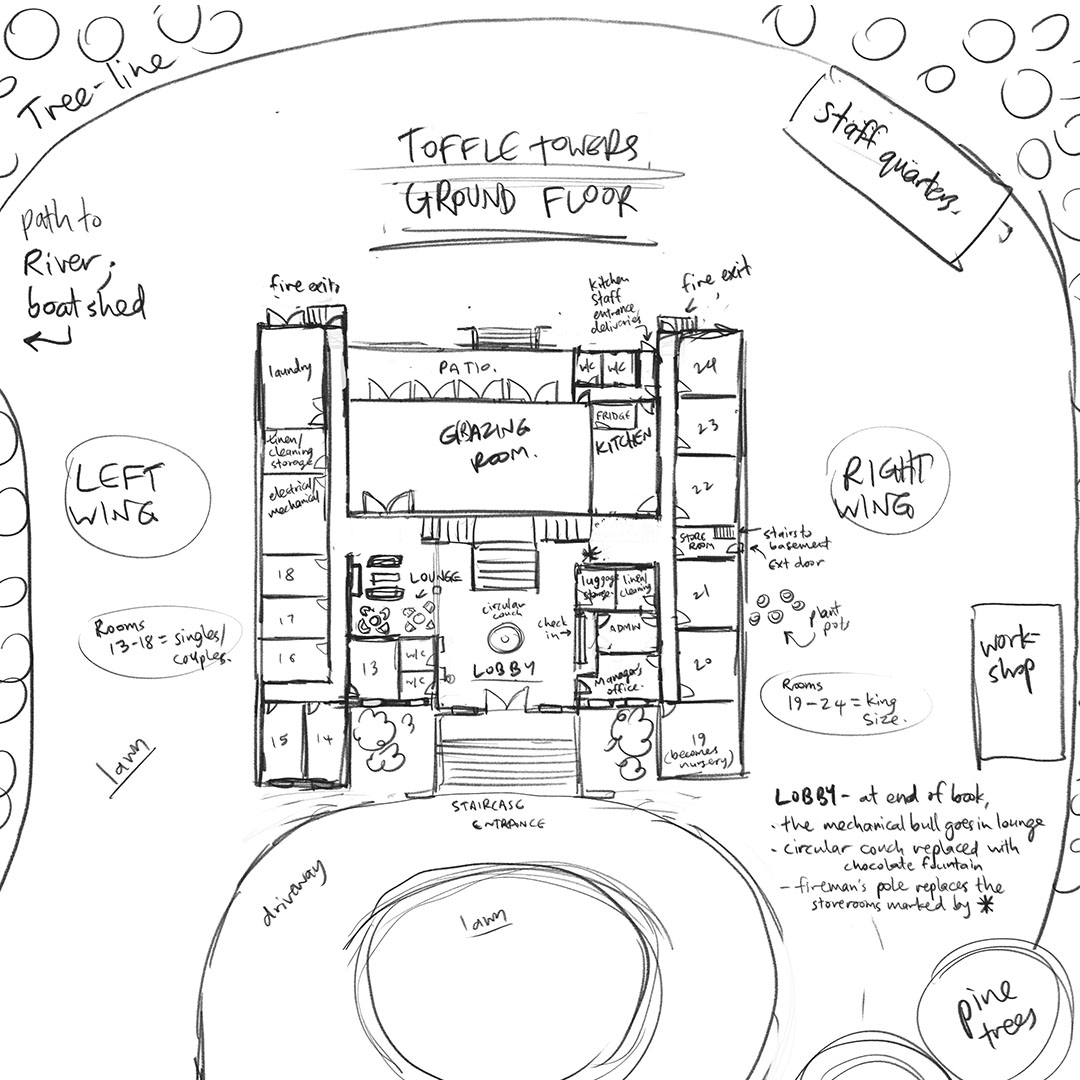 Tree-line
TOFFLE TOWERS
GROUND FLOOR
staff quarters.
path to
River,
boatshed
fire exit
kitchen
staff
entrance
deliveries
fire exit
laundry
PATIO.
W/C
W/C
24
FRIDGE
KITCHEN
GRAZING
ROOM.
23
linen/
cleaning
storage
electrical/
mechanical
22
LEFT
WING
RIGHT
WING
STORE
ROOM
stairs to
basement
ext door
18
LOUNGE
luggage
storage.
linen/
cleaning
21
17
circular
couch
check
in
ADMIN
plant
pots
Rooms
13-18 = singles/
couples.
16
13
W/C
W/C
LOBBY
Manager's
office.
20
work-
shop
Rooms
19-24 = king
size.
15
14
19
(becomes
nursery)
lawn
STAIRCASE
ENTRANCE
LOBBY - at end of book,
· the mechanical bull goes in lounge
· circular couch replaced with
chocolate fountain
- fireman's pole replaces the
storerooms marked by *
driveway
lawn
pine
trees